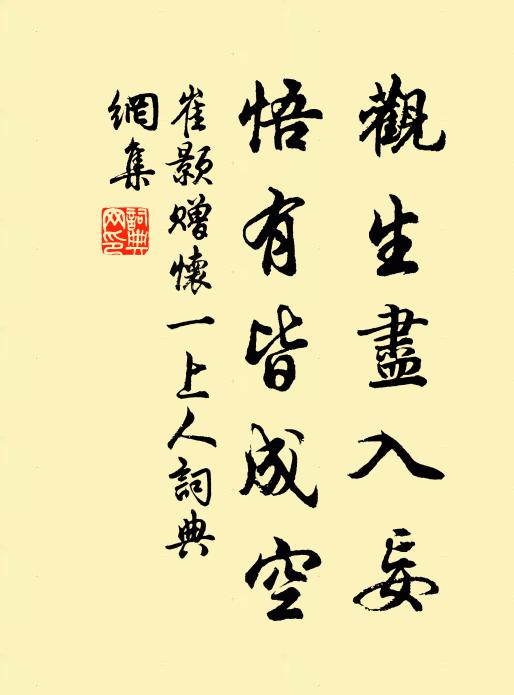 觀生盡入妄
悟有皆成空
崔顥贈懷一上人詞典
網集
詞典網印